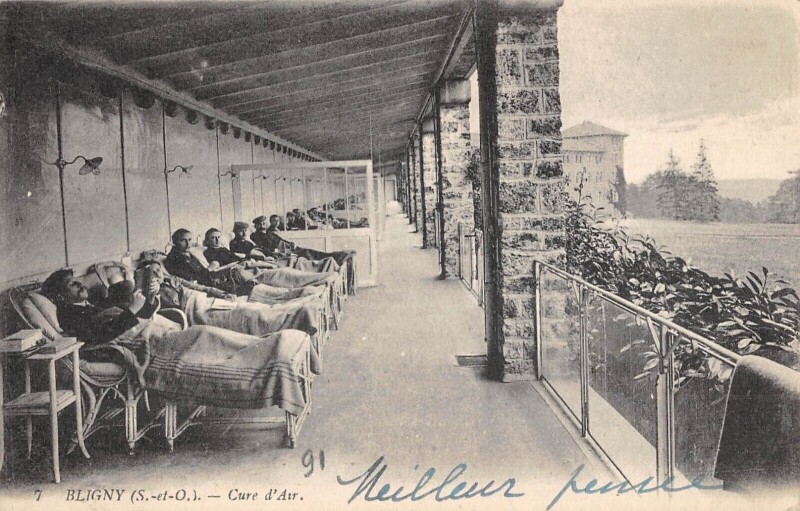 91
Meilleur pensée
7 BLIGNY (S.-et-O.). — Cure d'Air.